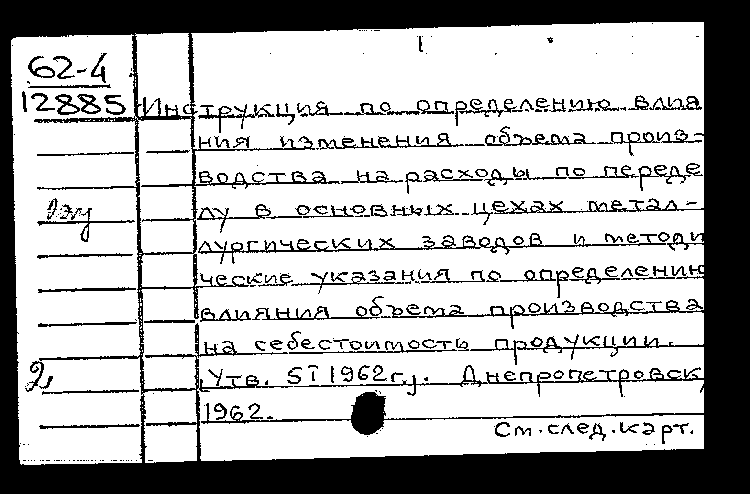 62-4
12885
Инструкция по определению влия
ния изменения объема произ-
водства на расходы по переде
лу в основных цехах метал-
лургических заводов и методи
ческие указания по определению
влияния объема производства
на себестоимость продукции.
Утв. 5 I 1962 г.]. Днепропетровск,
1962.
См. след. карт.
2,